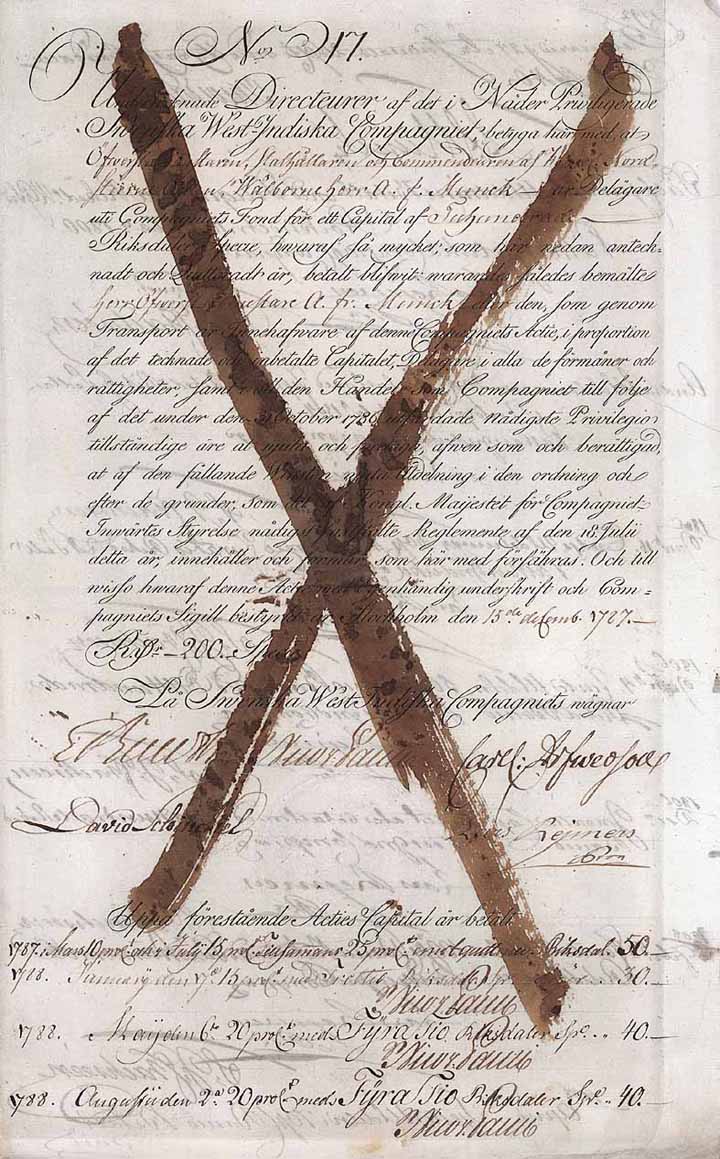 Nos. 17.
Undertecknade Directeurer af det i Nåder Privilegierade
Svenska West-Indiska Compagniet, betyga här med, at
Öfverståthållaren och Commendeuren af Kongl. Nord
Wälborne herr A. f. Munck är Delägare
uti Compagniets Fond för ett Capital af Tuhundrade
Riksdaler Specie, hwaraf så mycket, som här nedan anteck-
nadt och Quitteradt är, betalt blifwit: warandes således bemälte
herr A. fr. Munck, eller den, som genom
Transport är Innehafware af denne Compagniets Actie, i proportion
af det tecknade och inbetalte Capitalet, Delägare, i alla de förmåner och
rättigheter, samt all den Handel, som Compagniet till följe
af det under den 31 October 1786 nådigste Privilegio
tillständige äre at njuta och, äfven som och berättigad,
at af den fallande Winsten utdelning i den ordning och
efter de grunder, som Kongl. Maijestet för Compagniets
Inwärtes Styrelse nådigst Reglemente af den 18. Julii
detta år, innehåller och, som här med försäkras. Och till
wisso hwaraf denne Actie med egenhändig underskrift och Com-
pagniets Sigill bestyrkt är. Stockholm den 15de decemb. 1787.
200.
På Swenska West Indiska Compagniets wägnar
Carl: Arfwedson
David Schinckel
Lars Rejmers
Uppå förestående Acties Capital är betalt
1787. i Mars 10 proCt. och i Julij 15 proCt. tillsamans 25 proCt. emot Riksdal. 50.
1788. Januarij den 15 proCt. med Trettio Riksdaler 30.
Nordami
1788. Maij den 6te 20 proCt. meds Fyra Tio Riksdaler Spe. 40.
Nordami
1788. Augusti den 2a 20 proCt. meds Fyra Tio Riksdaler Spe. 40.
Nordami